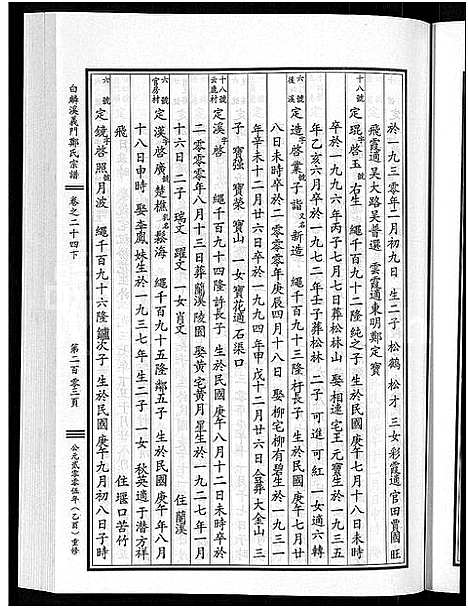 於一九三〇年二月初九日 生二子 松鶴 松才 三女彩霞適官田賈國旺
飛霞適吴大路吴普選 雲霞適東明鄭定寶
十八號 定焜字啓玉號右生 繩千百九十二隆純之子 生於民國庚午七月十八日未時
卒於一九九六年丙子七月七日葬松林山 娶相連宅王元寶生於一九三五
年乙亥六月卒於一九七二年壬子葬松林 二子 可進 可紅 一女適六轉
六號後溪 定造字啓業子詣又名新造 繩千百九十三隆杆長子 生於民國庚午七月廿
八日未時卒於二零零零年庚辰四月十八日 娶柳宅柳有碧生於一九三一
年辛未十二月廿六日卒於一九九四年甲戊十二月廿六日合葬大金山 三
子 寶强 寶榮 寶山 一女寶花適石渠口
十八號云鹿村 定溪字啓 繩千百九十四隆許長子 生於民國庚午八月十二日未時卒於
二零零零年八月十三日葬蘭溪陵園 娶黄宅黄月星生於一九二七年一月
十六日 二子 瑞文 躍文 一女肖文 住蘭溪
六號官房村 定漢字啓廣號楚樵乳名鬆海 繩千百九十五隆鄰五子 生於民國庚午八月
十八日申時 娶李鳳妹生於一九三七年生二子 一女 秋英適于潜方祥
飛 住堰口苦竹
六號 定鏡字啓照號月波 繩千百九十六隆鑪次子 生於民國庚午九月初八日子時
白麟溪義門鄭氏宗譜
卷之二十四下
第二百零三頁
公元贰零零伍年(乙酉)重修